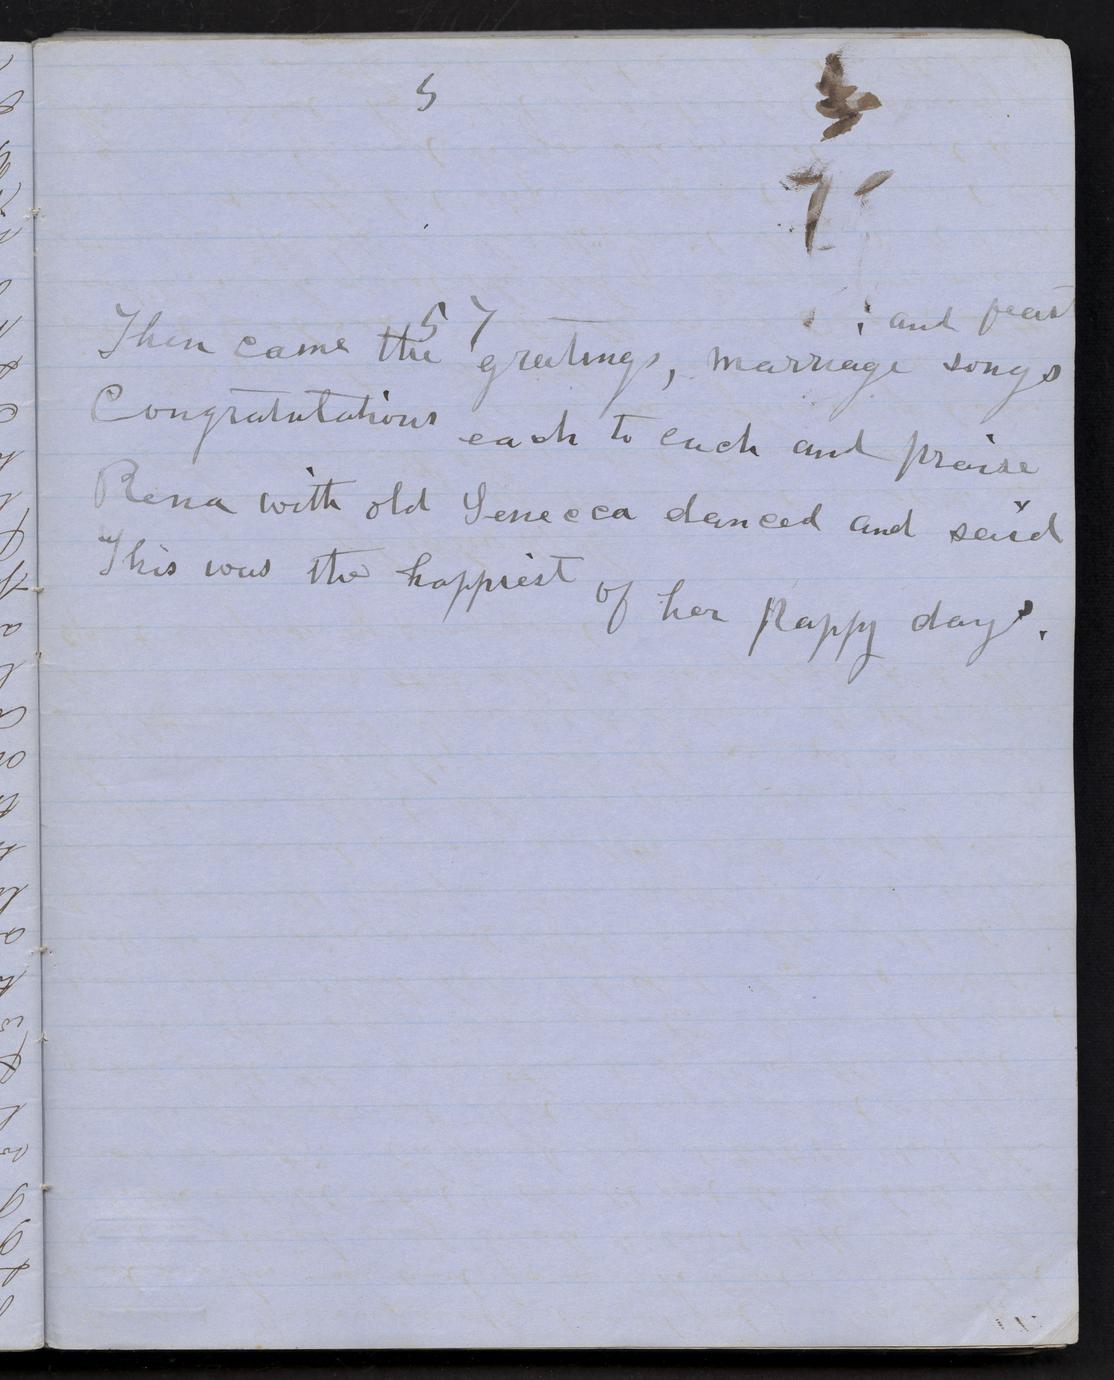 5
57
and feast
Then came the greetings, marriage songs
Congratutations each to each and praise
Rena with old Senecca danced and said
This was the happiest of her happy days.